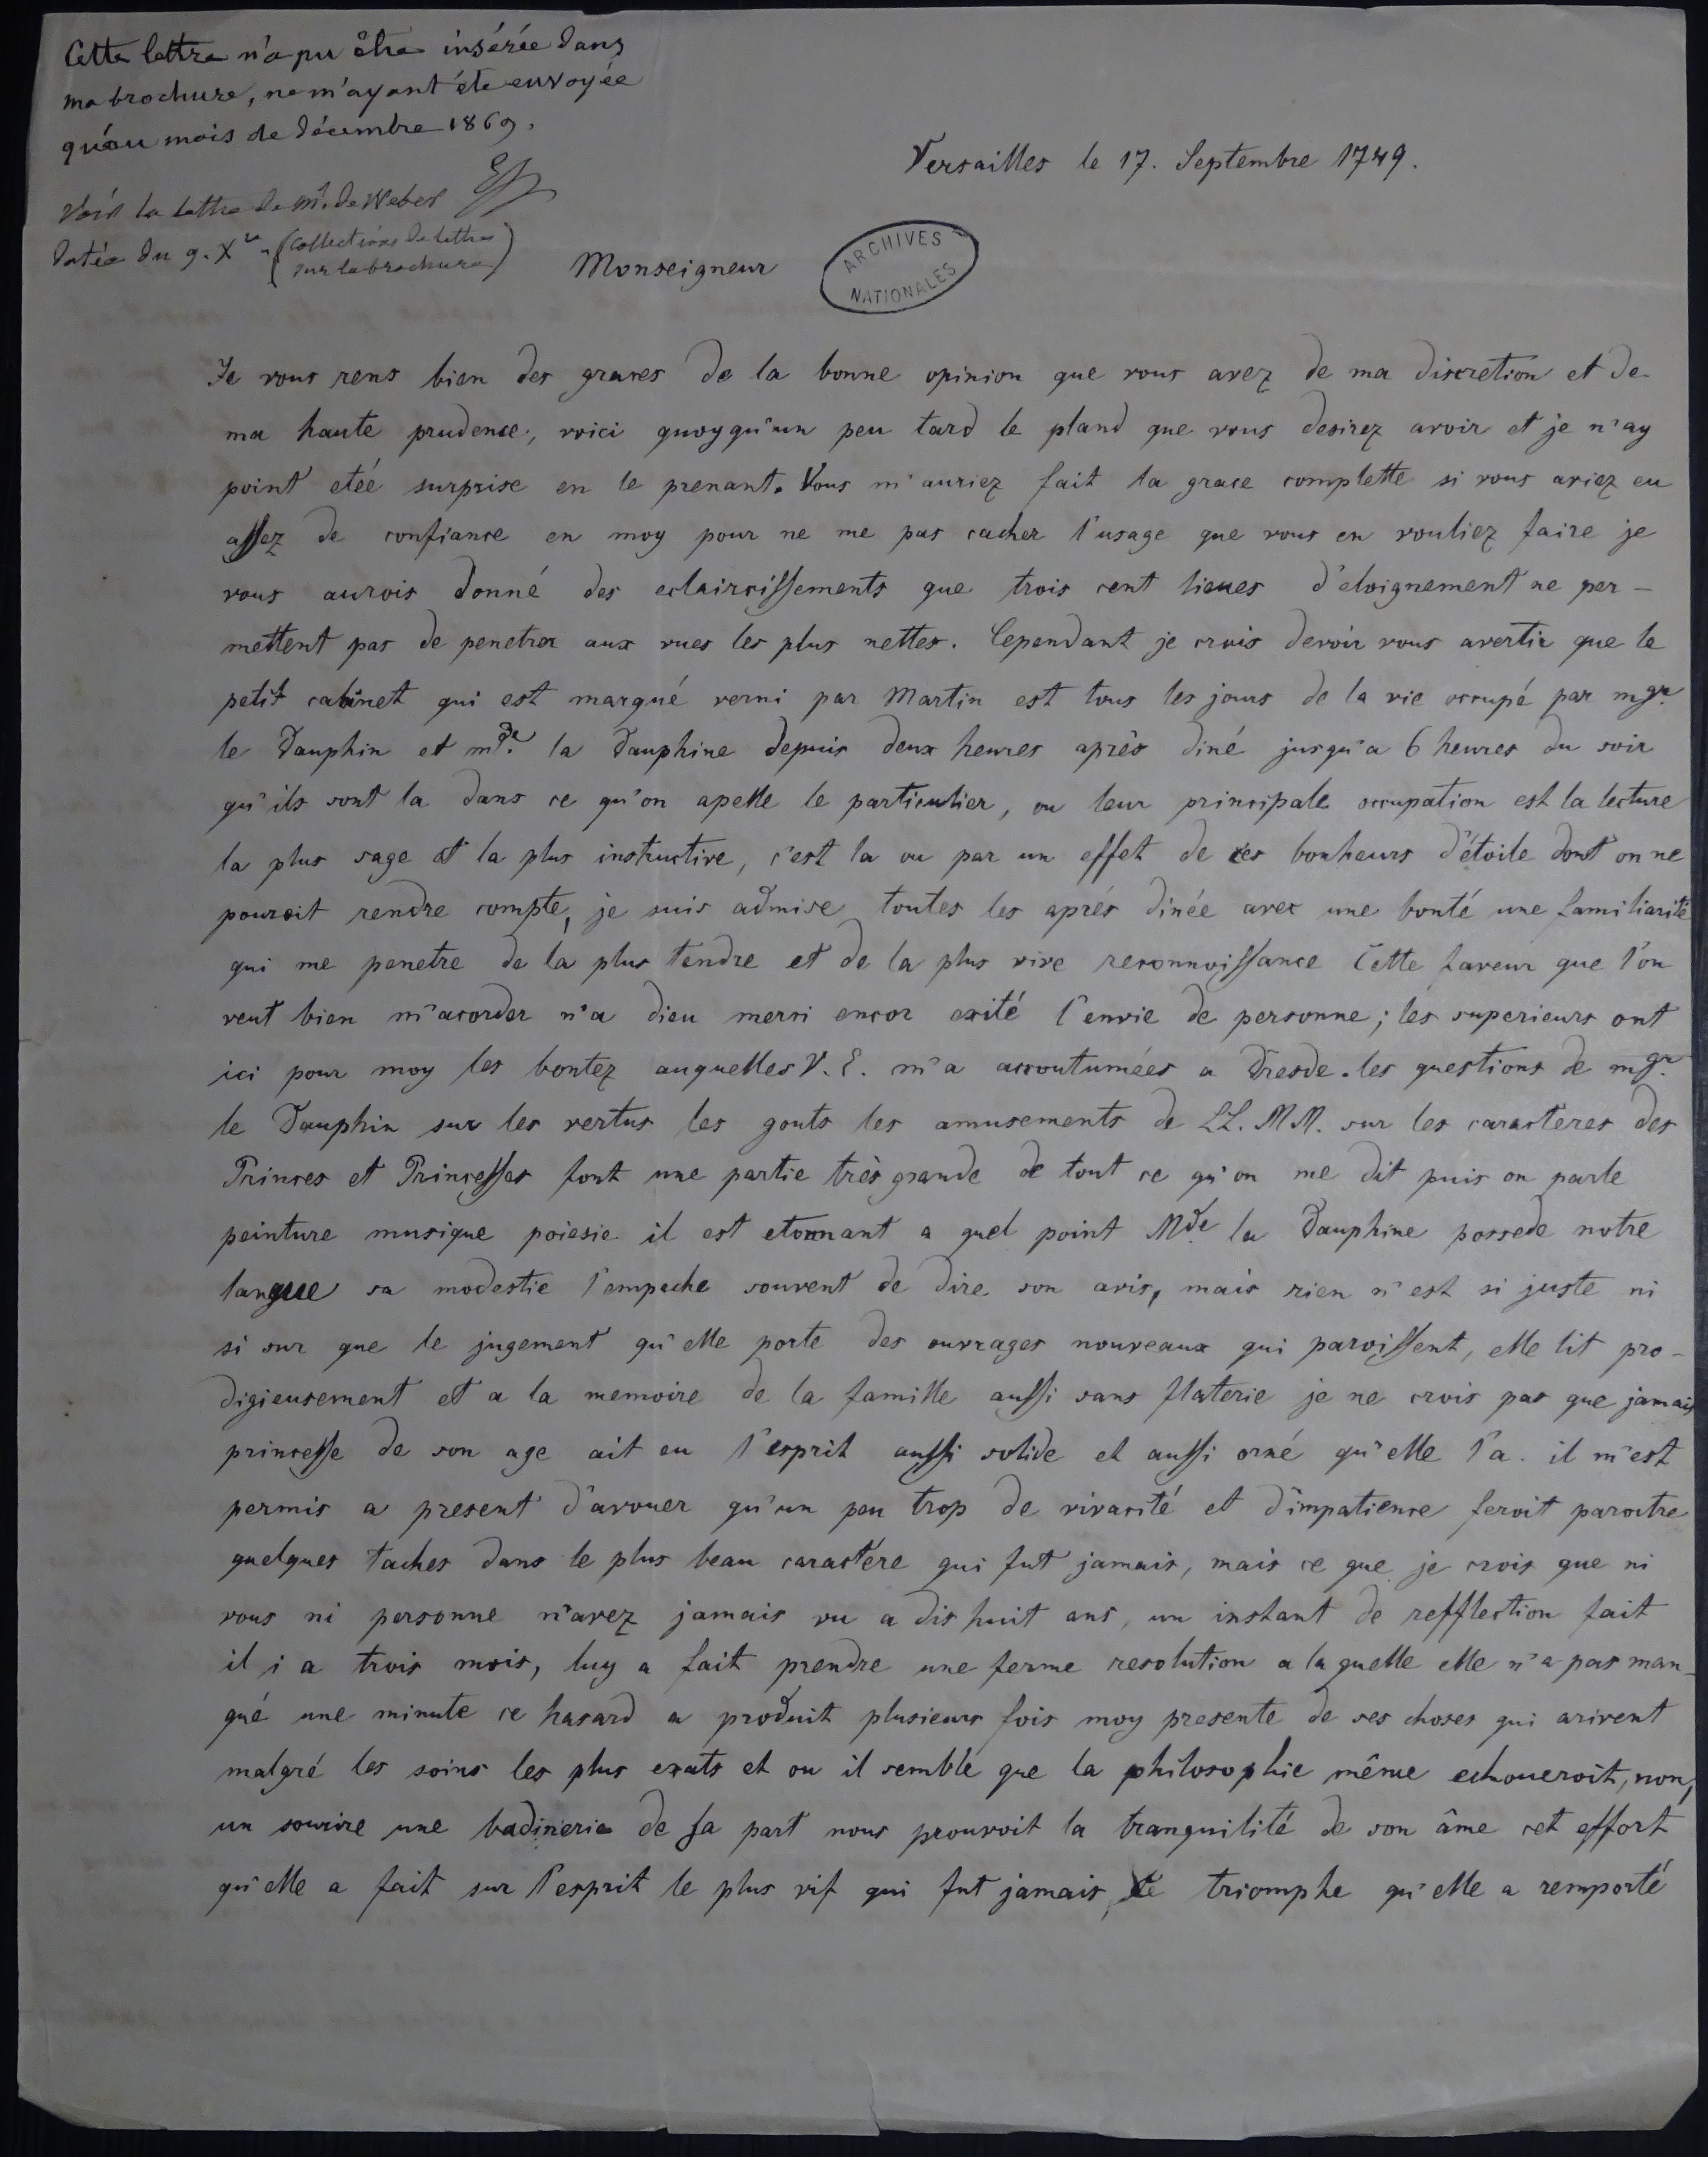 Cette lettre n'a pu être insérée dans
ma brochure, ne m'ayant été envoyée
qu'au mois de décembre 1869.
Voir la lettre de Mr. de Weber
datée du 9. Xbre (Collections de lettres
sur la brochure)
Versailles le 17. Septembre 1749.
Monseigneur
ARCHIVES
NATIONALES
Je vous rens bien des graces de la bonne opinion que vous avez de ma discretion et de
ma haute prudence, voici quoyqu'un peu tard le pland que vous desirez avoir et je n'ay
point etée surprise en le prenant. Vous m'auriez fait la grace complette si vous aviez eu
assez de confiance en moy pour ne me pas cacher l'usage que vous en vouliez faire je
vous aurois donné des eclaircissements que trois cent lieues d'eloignement ne per-
mettent pas de penetrer aux vues les plus nettes. Cependant je crois devoir vous avertir que le
petit cabinet qui est marqué verni par Martin est tous les jours de la vie occupé par mgr.
le Dauphin et mde. la Dauphine depuis deux heures après diné jusqu'a 6 heures du soir
qu'ils sont la dans ce qu'on apelle le particulier, ou leur principale occupation est la lecture
la plus sage et la plus instructive, c'est la ou par un effet de ces bonheurs d'étoile dont on ne
pouroit rendre compte, je suis admise toutes les après dinée avec une bonté une familiarité
qui me penetre de la plus tendre et de la plus vive reconnoissance Cette faveur que l'on
veut bien m'acorder n'a dieu merci encor exité l'envie de personne; les superieurs ont
ici pour moy les bontez auquelles V. E. m'a accoutumées a Dresde. les questions de mgr.
le Dauphin sur les vertus les gouts les amusements de LL. MM. sur les caracteres des
Princes et Princesses font une partie très grande de tout ce qu'on me dit puis on parle
peinture musique poiesie il est etonnant a quel point Mde la Dauphine possede notre
langue sa modestie l'empeche souvent de dire son avis, mais rien n'est si juste ni
si sur que le jugement qu'elle porte des ouvrages nouveaux qui paroissent, elle lit pro-
digieusement et a la memoire de la famille aussi sans flaterie je ne crois pas que jamais
princesse de son age ait eu l'esprit aussi solide et aussi orné qu'elle l'a. il m'est
permis a present d'avouer qu'un peu trop de vivacité et d'impatience feroit paroitre
quelques taches dans le plus beau caractére qui fut jamais, mais ce que je crois que ni
vous ni personne n'avez jamais vu a dis huit ans, un instant de refflection fait
il i a trois mois, luy a fait prendre une ferme resolution a la quelle elle n'a pas man-
qué une minute ce hasard a produit plusieurs fois moy presente de ses choses qui arivent
malgré les soins les plus exats et ou il semble que la philosophie même echoueroit, non,
un sourire une badinerie de sa part nous prouvoit la tranquilité de son âme cet effort
qu'elle a fait sur l'esprit le plus vif qui fut jamais, le triomphe qu'elle a remporté